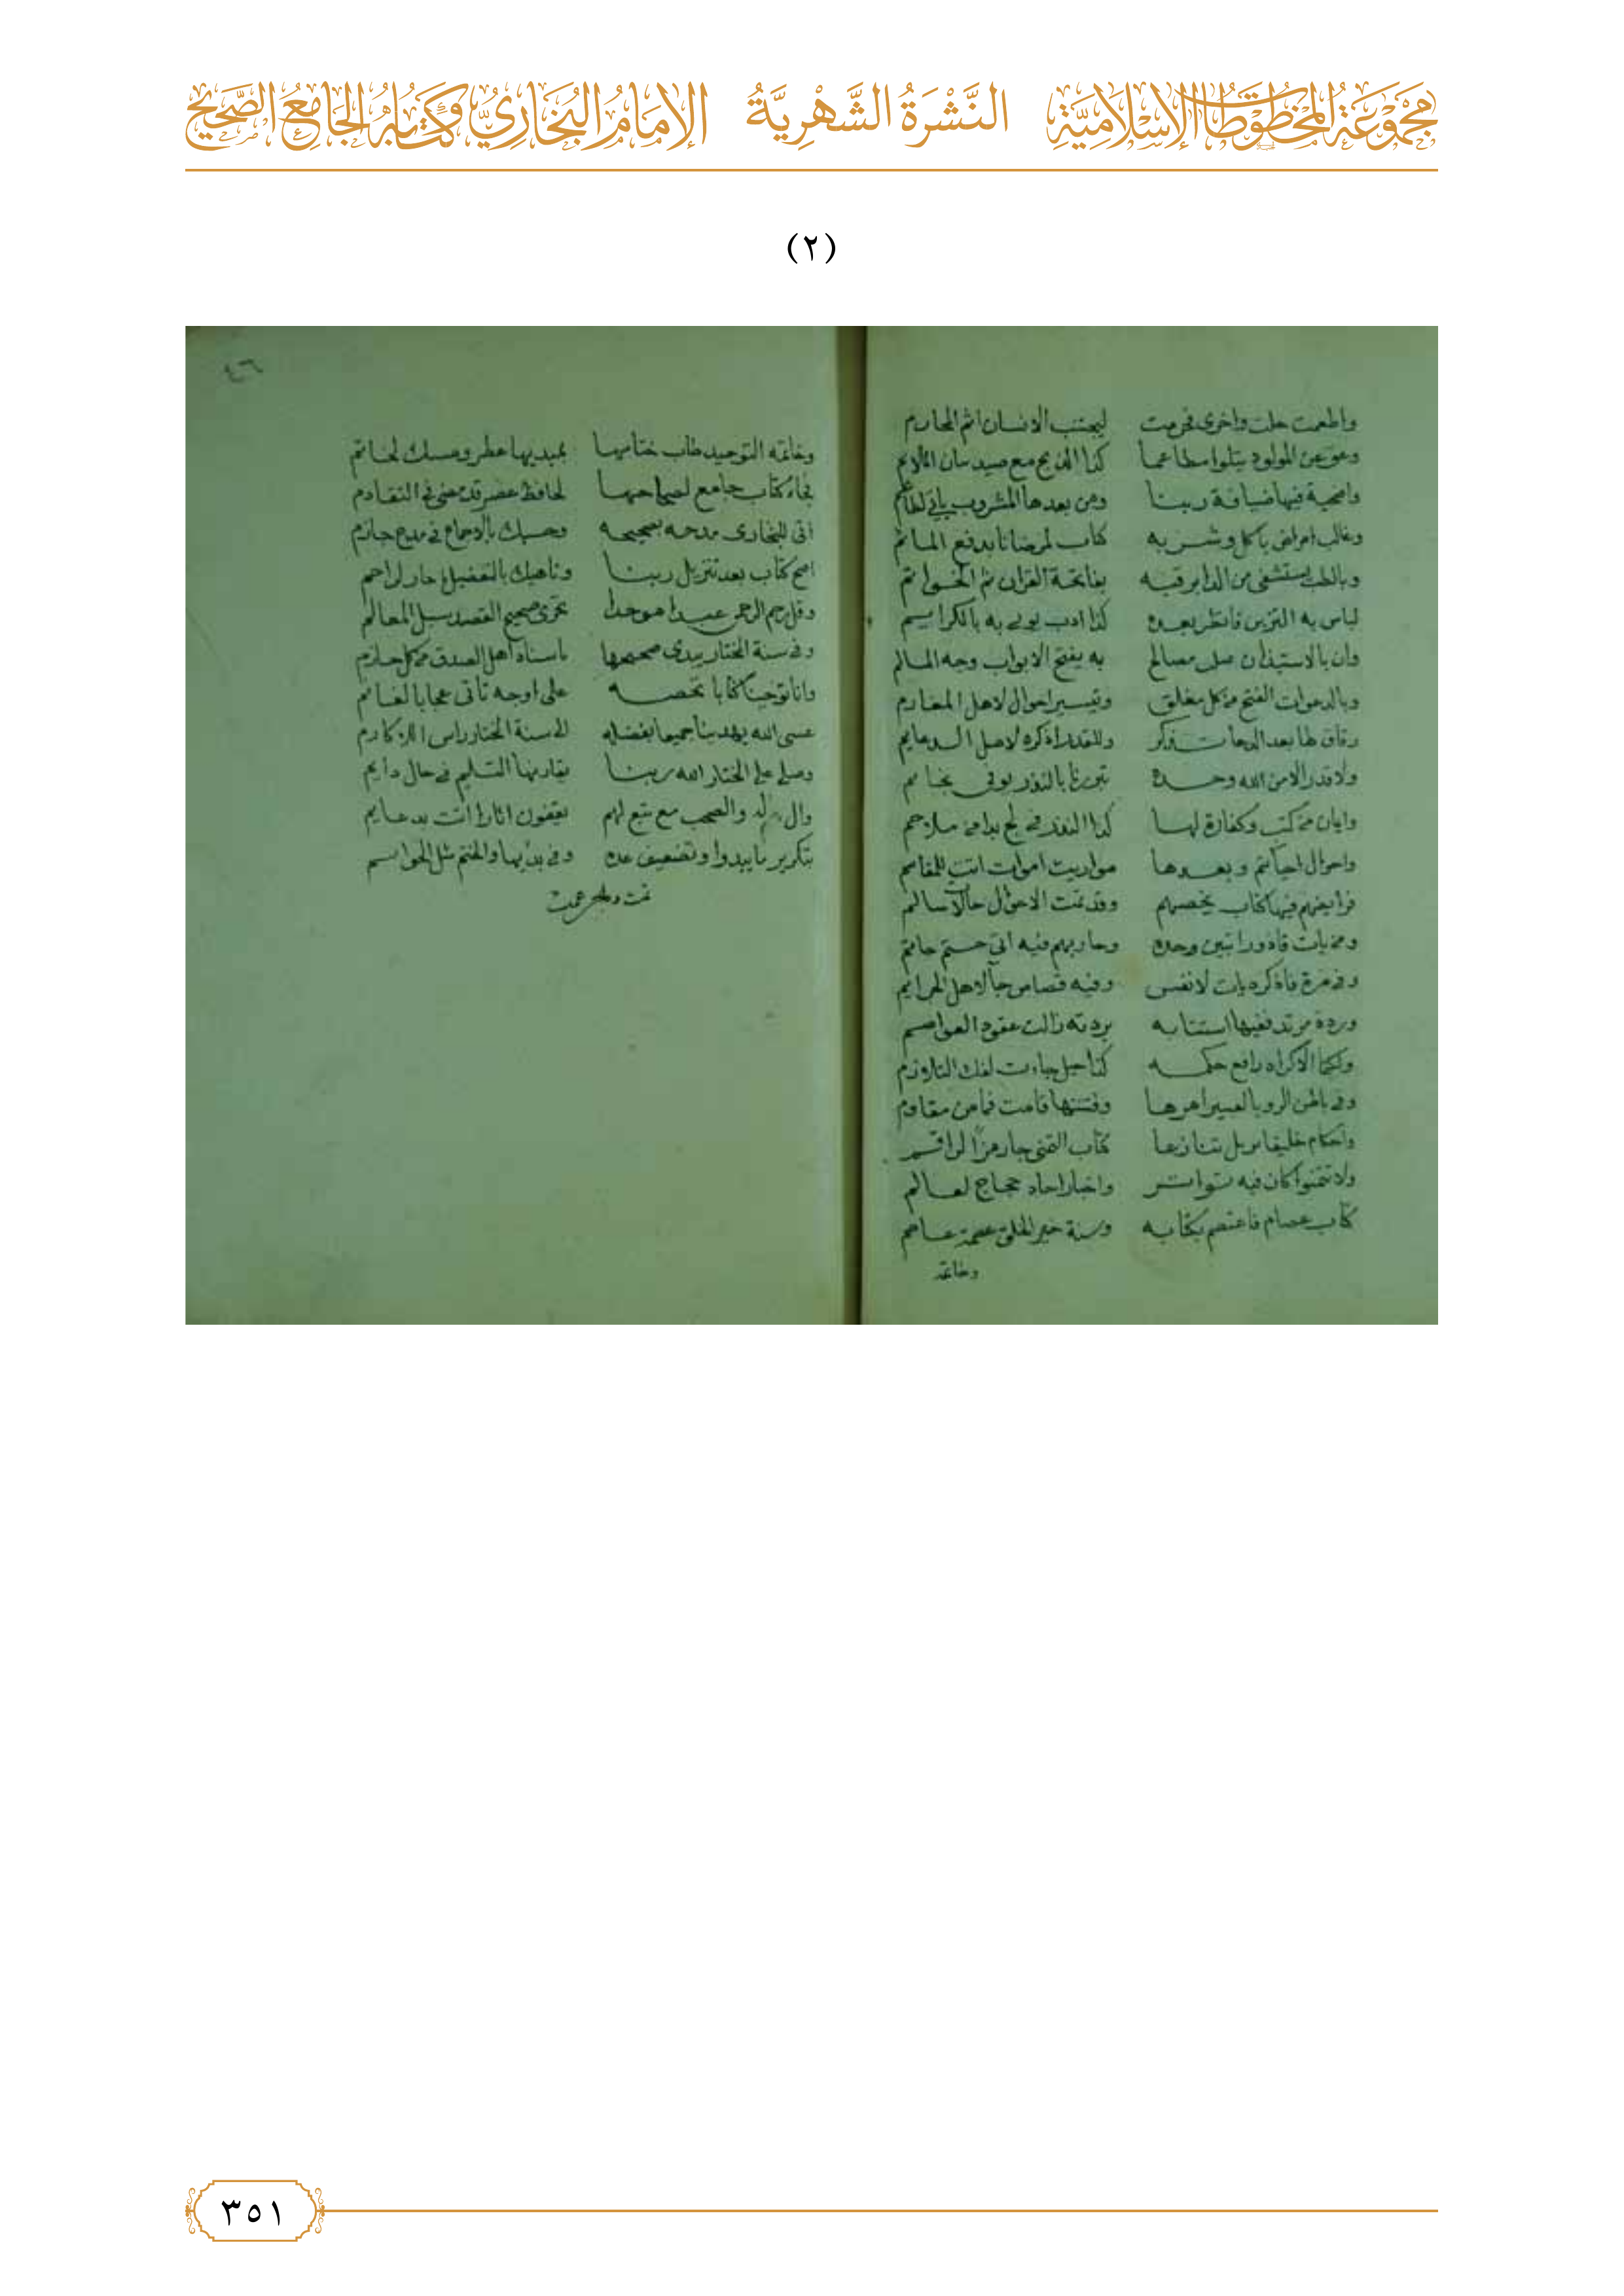 مَجْمُوعَةُ المَخْطُوطَاتِ الإِسْلَامِيَّةِ النَّشْرَةُ الشَّهْرِيَّةُ الإِمَامُ البُخَارِيُّ وَكِتَابُهُ الجَامِعُ الصَّحِيحُ
(٢)
واطعمت حلت واخرى فحرمت ليجتنب الانسان اثم المحارم
وعق عن المولود يتلوا مطاعما كذا الذبح مع صيد
واضحية فيها ضيافة ربنا ومن بعدها المشروب ياتي
وغالب امراض باكل وشربه كتاب لمرضانا بدفع الماثم
وبالطب يستشفى من الدا برقيه بفاتحة القران ثم الخواتم
لباس به التزين فانظر بعده كذا ادب
وان بالاستيذان مصالح به يفتح الابواب وجه المسالم
وبالدعوات الفتح من كل مغلق وتيسير احوال لاهل المغارم
رقاق بعد الدعا وللقدر اذكره لاهل الدعايم
ولا قدر الا من الله وحده تبررنا بالنذر
وايمان من كتب وكفارة لها كذا النذر في لج بدا من ملاحم
واحوال احيا تتم وبعدها مواريث اموات اتت للمقاسم
فرايضهم فيها كتاب يخصهم وقد تمت الاحوال حالات سالم
وحاربهم فيه اتى حتم
وفيه قصاص جا لاهل الجرايم
وردة مرتد ففيها استتابه بردته زالت عقود العواصم
ولكنما الاكراه رافع حكمه كذا حيل جاءت لفك التلازم
وفي باطن الرويا لتعبير امرها وفتنتها قامت فما من مقاوم
كتاب التمني جا رمزا لراقم
ولا تتمنوا كان فيه تواتر واخبار احاد حجاج لعالم
كتاب عصام فاعتصم بكتابه وسنة خير الخلق عصمة عاصم
وخاتمة
٤٦
وخاتمه التوحيد طاب ختامها بمبديها عطر ومسك لخاتم
فجاء كتاب جامع لحافظ عصر قد مضى في التقادم
اتى للبخاري مدحه بصحيحه وحسبك بالاجماع في مدح جازم
اصح كتاب بعد تنزيل ربنا وناهيك بالتفضيل
وقل رحم الرحمن عبدا موحدا تحرى صحيح القصد سبل المعالم
وفي سنة المختار يبدي صحيحها باسناد اهل الصدق من كل حازم
وانا توخينا كتابا نخصه على اوجه تاتي عجابا لغانم
عسى الله يهدينا جميعا بفضله الى سنة المختار راس الاكارم
وصلى على المختار الله ربنا يقارنها التسليم في حال دايم
وال له والصحب مع تبع لهم يقفون اثارا اتت بدعايم
بتكرير ما يبدوا وتضعيف عده وفي بدايها والختم مثل الخواتم
تمت
٣٥١